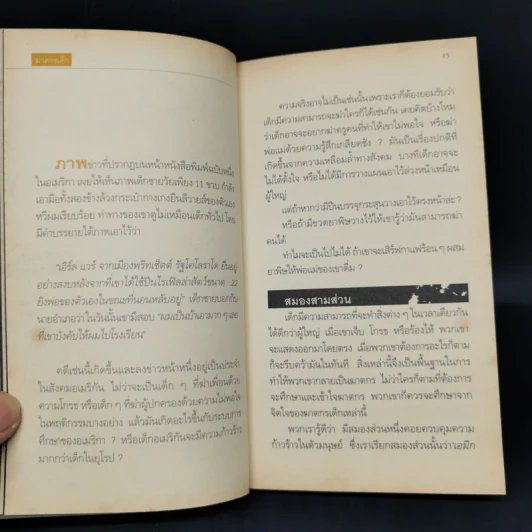 ฆาตกรเด็ก
ภาพข่าวที่ปรากฏบนหน้าหนังสือพิมพ์ฉบับหนึ่ง
ในอเมริกา เผยให้เห็นภาพเด็กชายวัยเพียง 11 ขวบ กำลัง
เอามือทั้งสองข้างล้วงกระเป๋ากางเกงยีนส์ลีวายส์ของตัวเอง
หวีผมเรียบร้อย ท่าทางของเขาดูไม่เหมือนเด็กทั่วไป โดย
มีคำบรรยายใต้ภาพเอาไว้ว่า
"เอิร์ล แวร์ จากเมืองพริทเชิตต์ รัฐโคโลราโด ยืนอยู่
อย่างสงบหลังจากที่เขาได้ใช้ปืนไรเฟิลล่าสัตว์ขนาด .22
ยิงพ่อของตัวเองในขณะที่นอนหลับอยู่" เด็กชายบอกกับ
นายอำเภอว่า ในวันนั้นเขามีสอบ "ผมเป็นบ้าเอามาก ๆ เลย
ที่เขาบังคับให้ผมไปโรงเรียน"
คดีเช่นนี้เกิดขึ้นและลงข่าวหน้าหนึ่งอยู่เป็นประจำ
ในสังคมอเมริกัน ไม่ว่าจะเป็นเด็ก ๆ ที่ฆ่าเพื่อนด้วย
ความโกรธ หรือเด็ก ๆ ที่ฆ่าผู้ปกครองด้วยความไม่พอใจ
ในพฤติกรรมบางอย่าง แล้วมันเกิดอะไรขึ้นกับระบบการ
ศึกษาของอเมริกา ? หรือเด็กอเมริกันจะมีความก้าวร้าว
มากกว่าเด็กในยุโรป ?
15
ความจริงอาจไม่เป็นเช่นนั้น เพราะเราก็ต้องยอมรับว่า
เด็กมีความสามารถจะฆ่าใครก็ได้เช่นกัน เคยคิดบ้างไหม
ว่าเด็กอาจจะอยากฆ่าครูคนที่ทำให้เขาไม่พอใจ หรือฆ่า
พ่อแม่ด้วยความรู้สึกเกลียดชัง ? มันเป็นเรื่องปกติที่
เกิดขึ้นจากความเหลื่อมล้ำทางสังคม บางทีเด็กอาจจะ
ไม่ได้ตั้งใจ หรือไม่ได้มีการวางแผนเอาไว้ล่วงหน้าเหมือน
ผู้ใหญ่
แต่ถ้าหากว่ามีปืนบรรจุกระสุนวางเอาไว้ตรงหน้าล่ะ ?
หรือถ้ามีขวดยาพิษวางไว้ให้เขารู้ว่ามันสามารถฆ่า
คนได้
ทำไมจะเป็นไปไม่ได้ ถ้าเขาจะเสิร์ฟกาแฟร้อน ๆ ผสม
ยาพิษให้พ่อแม่ของเขาดื่ม ?
สมองสามส่วน
เด็กมีความสามารถที่จะทำสิ่งต่าง ๆ ในเวลาเดียวกัน
ได้ดีกว่าผู้ใหญ่ เมื่อเขาเจ็บ โกรธ หรือร้องไห้ พวกเขา
จะแสดงออกมาโดยตรง เมื่อพวกเขาต้องการอะไรก็ตาม
ก็จะรีบคว้ามันในทันที สิ่งเหล่านี้จึงเป็นพื้นฐานในการ
ทำให้พวกเขากลายเป็นฆาตกร ไม่ว่าใครก็ตามที่ต้องการ
จะศึกษาและเข้าใจฆาตกร พวกเขาก็ควรจะศึกษาจาก
จิตใจของฆาตกรเด็กเหล่านี้
พวกเรารู้ดีว่า มีสมองส่วนหนึ่งคอยควบคุมความ
ก้าวร้าวในตัวมนุษย์ ซึ่งเราเรียกสมองส่วนนั้นว่าเอมิก